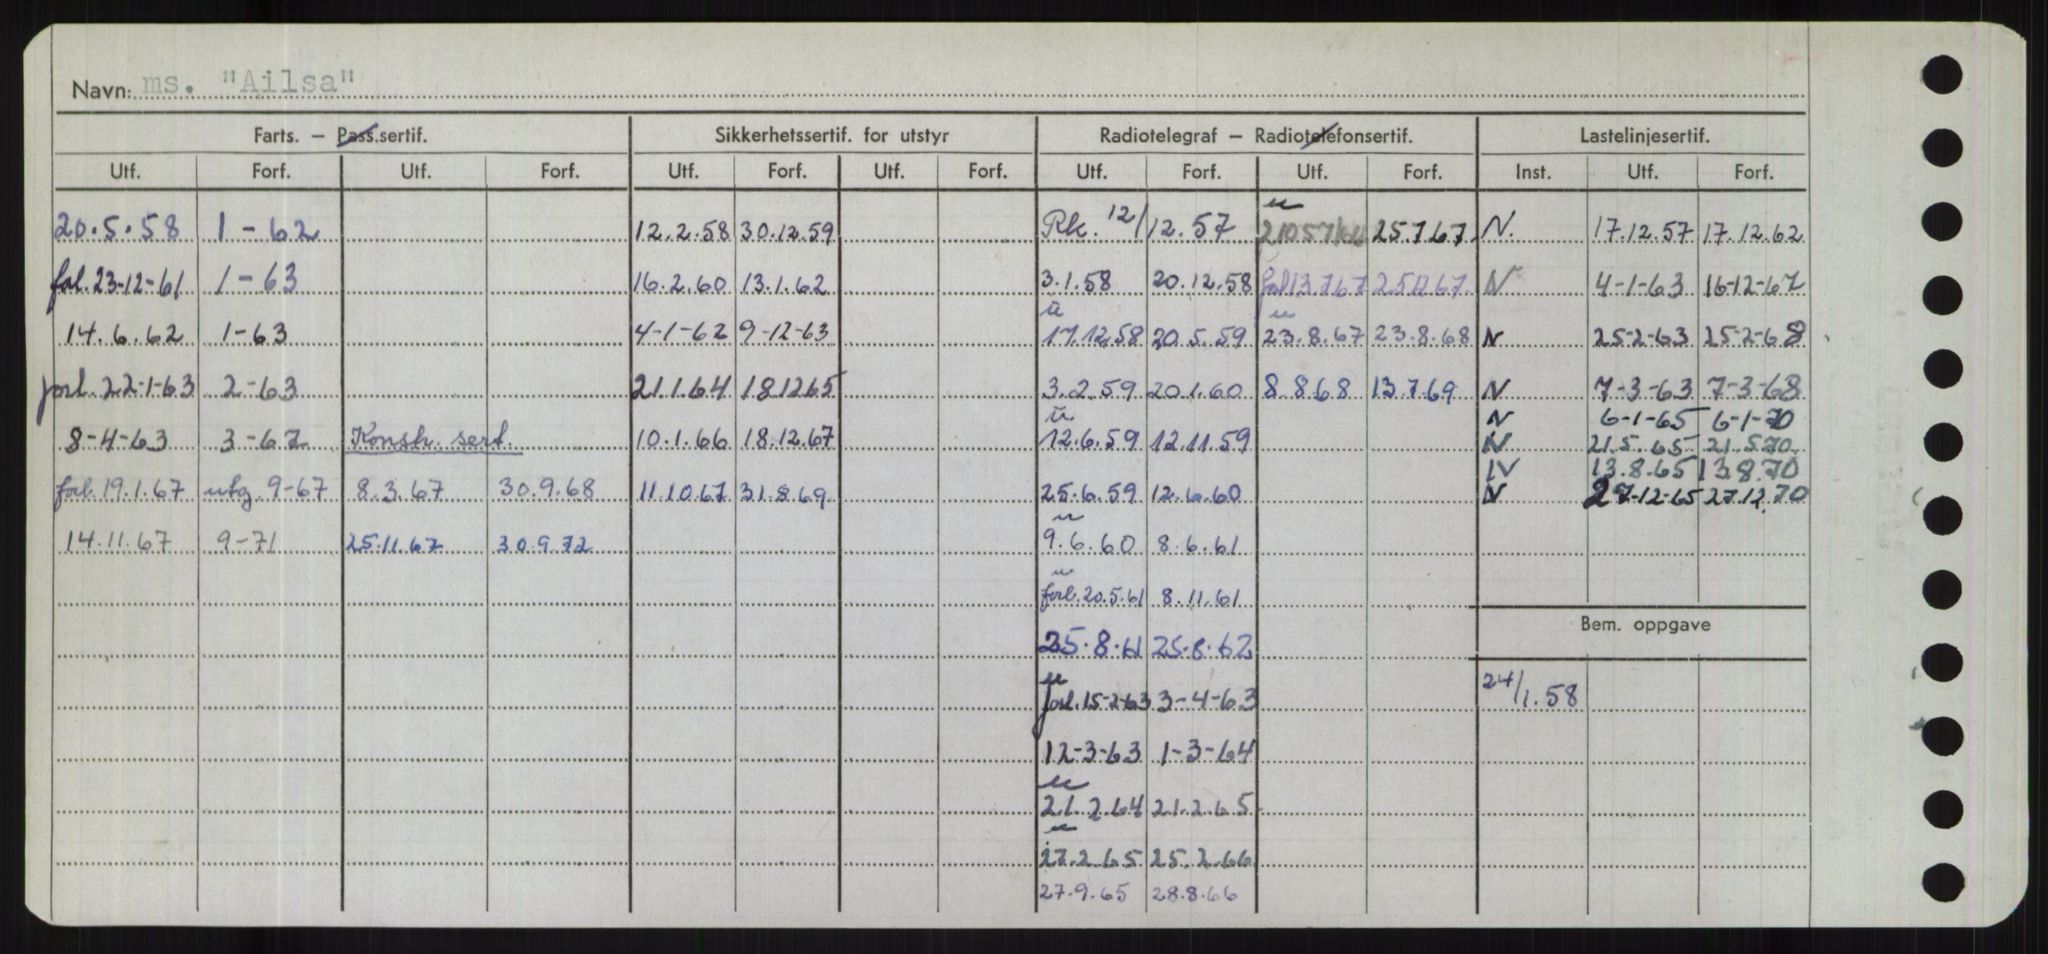 Navn: ms. "Ailsa"
Farts. — Pass.sertif. Sikkerhetssertif. for utstyr Radiotelegraf — Radiotelefonsertif. Lastelinjesertif.
Utf. Forf. Utf. Forf. Utf. Forf. Utf. Forf. Utf. Forf. Utf. Forf. Inst. Utf. Forf.
u
20.5.58 1-62 12.2.58 30.12.59 Rk. 12/12.57 25.7.67 N. 17.12.57 17.12.62
23-12-61 1-63 16.2.60 13.1.62 3.1.58 20.12.58 13.7.67 N 4-1-63 16-12-67
u u
14.6.62 1-63 4-1-62 9-12-63 17.12.58 20.5.59 23.8.67 23.8.68 N 25-2-63 25-2-68
forl. 22-1-63 2-63 21.1.64 18.12.65 3.2.59 20.1.60 8.8.68 13.7.69 N 7-3-63 7-3-68
u N 6-1-65 6-1-70
8-4-63 3-67 Konstr. sert. 10.1.66 18.12.67 12.6.59 12.11.59 N 21.5.65 21.5.70
N 13.8.65 13.8.70
forl. 19.1.67 utg. 9-67 8.3.67 30.9.68 11.10.67 31.8.69 25.6.59 12.6.60 N 27-12-65 27.12.70
u
14.11.67 9-71 25.11.67 30.9.72 9.6.60 8.6.61
u
forl. 20.5.61 8.11.61
Bem. oppgave
25.8.61 25.8.62
u
forl. 15-2-63 3-4-63 24/1.58
12-3-63 1-3-64
u
21.2.64 21.2.65
u
27.2.65 25.2.66
27.9.65 28.8.66